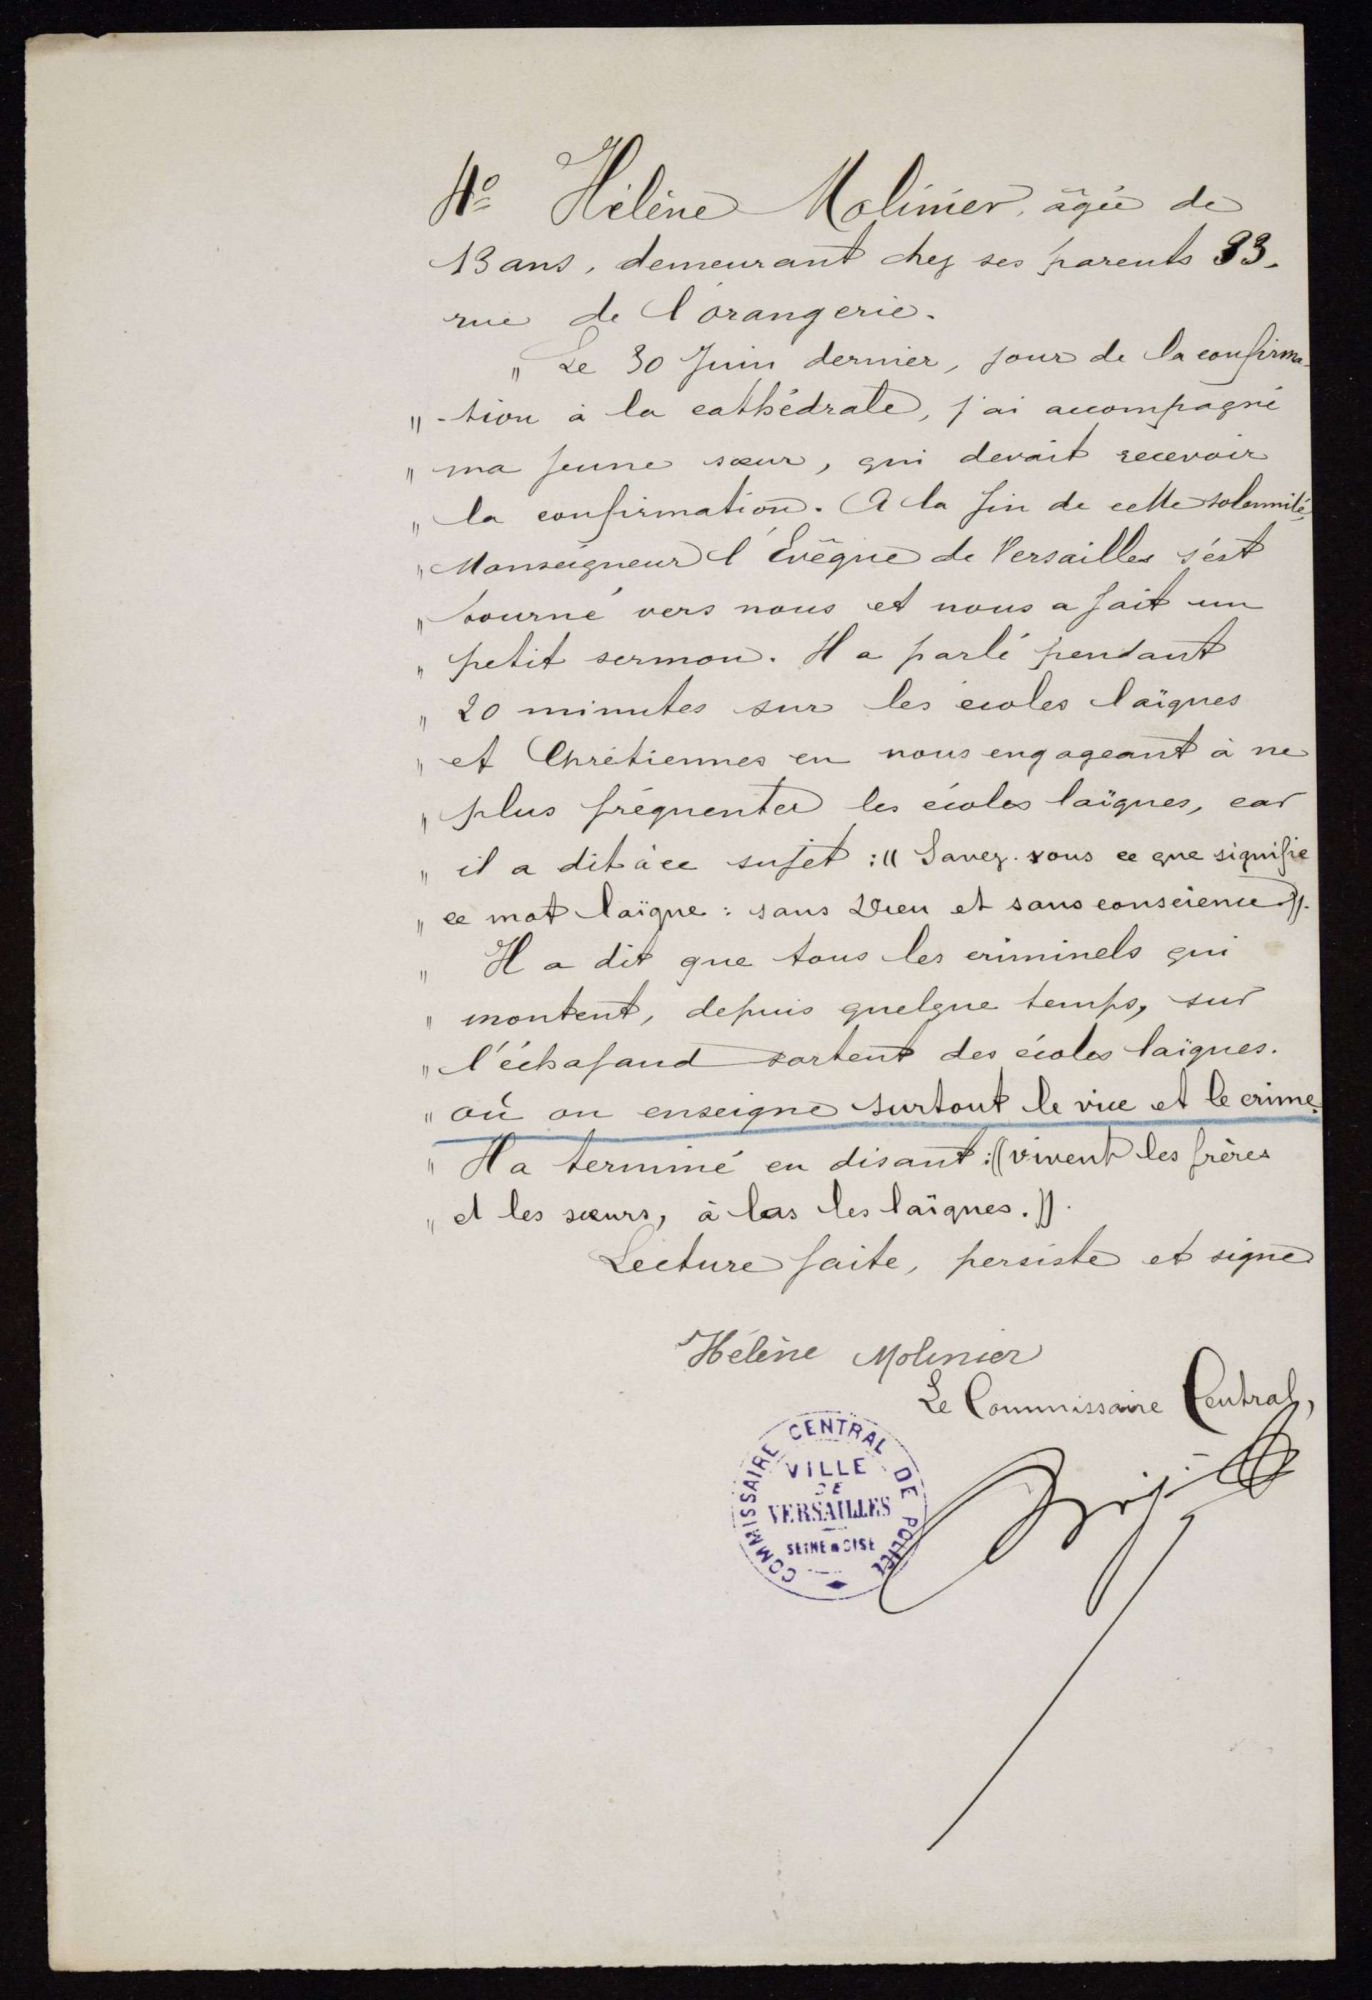 4º Hélène Molinier, âgée de
13 ans, demeurant chez ses parents 33,
rue de l'orangerie.
" Le 30 Juin dernier, jour de la confirma-
" -tion à la cathédrale, j'ai accompagné
" ma jeune sœur, qui devait recevoir
" la confirmation. A la fin de cette solennité,
" Monseigneur l'Evêque de Versailles s'est
" tourné vers nous et nous a fait un
" petit sermon. Il a parlé pendant
" 20 minutes sur les écoles laïques
" et Chrétiennes en nous engageant à ne
" plus fréquenter les écoles laïques, car
" il a dit à ce sujet : (( Savez-vous ce que signifie
" ce mot laïque : sans Dieu et sans conscience )).
" Il a dit que tous les criminels qui
" montent, depuis quelque temps, sur
" l'échafaud sortent des écoles laïques.
" où on enseigne surtout le vice et le crime.
" Il a terminé en disant : (( vivent les frères
" et les sœurs, à bas les laïques. )).
Lecture faite, persiste et signe
Hélène Molinier
Le Commissaire Central,
COMMISSAIRE CENTRAL DE POLICE
VILLE
DE
VERSAILLES
SEINE & OISE